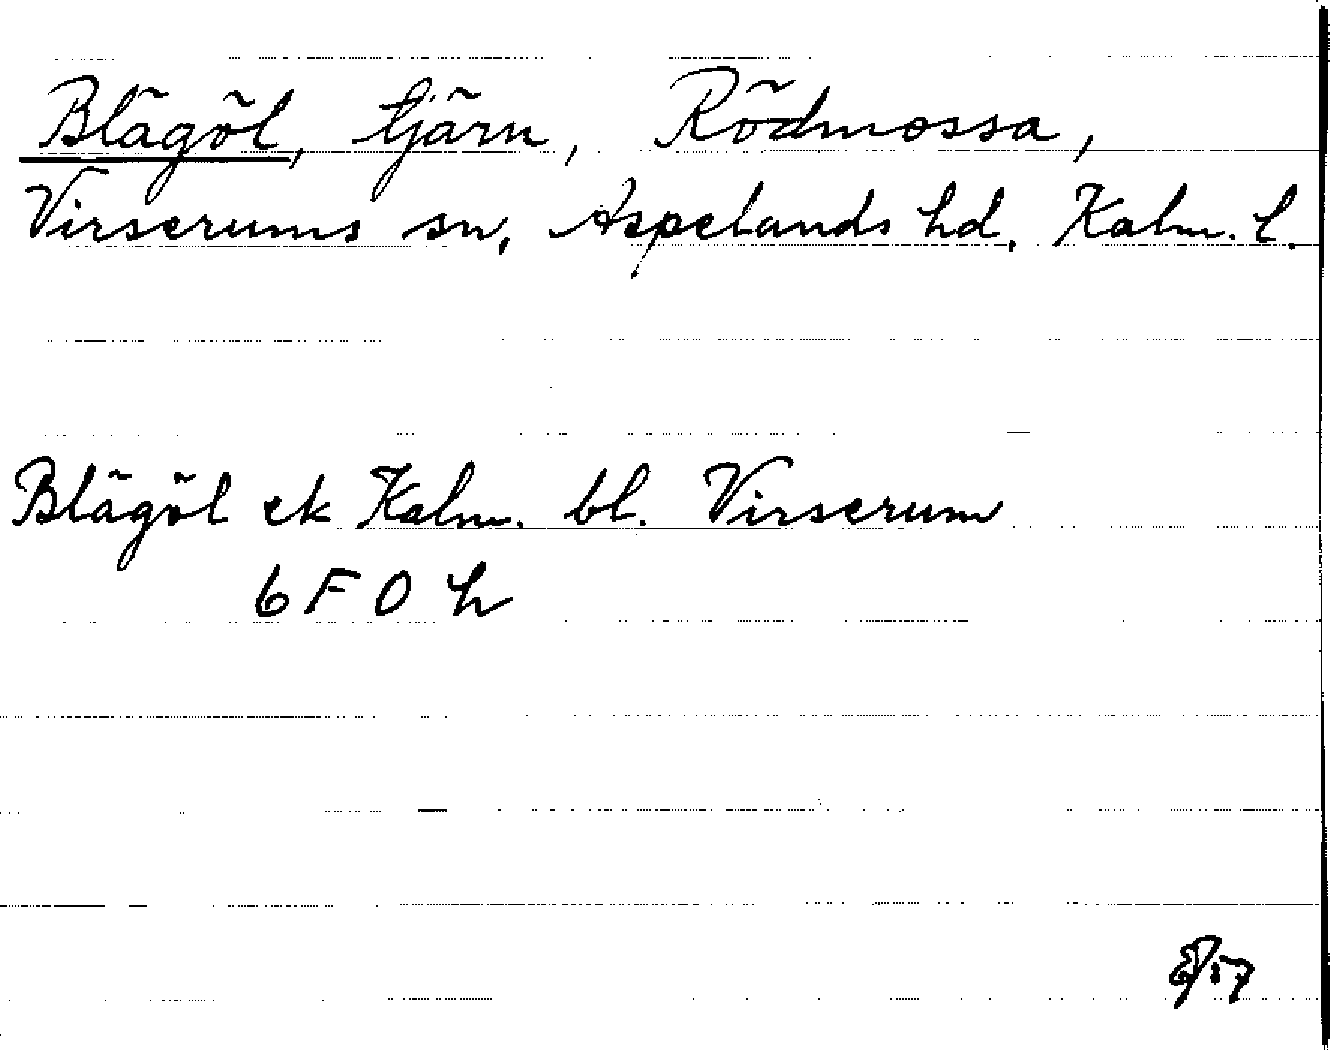 Blägöl, tjärn, Rödmossa,
Virserums sn, Aspelands hd, Kalm. l.
Blägöl ek Kalm. bl. Virserum
6 F 0 h